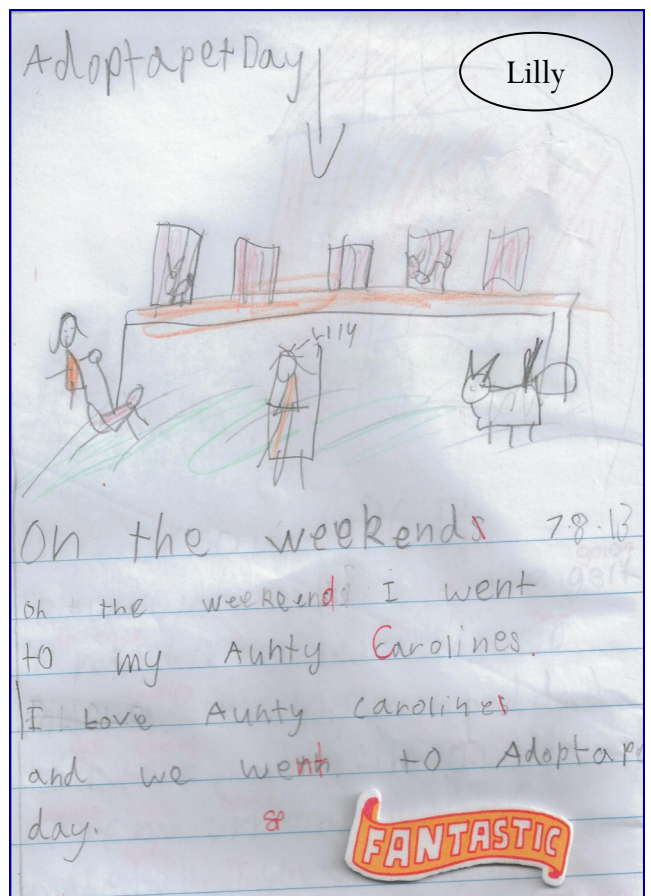 Adoptapet Day
Lilly
Lilly
On the weekends 7.8.13
on the weekend I went
to my Aunty Carolines.
I Love Aunty Carolines
and we went to Adoptape
day.
FANTASTIC